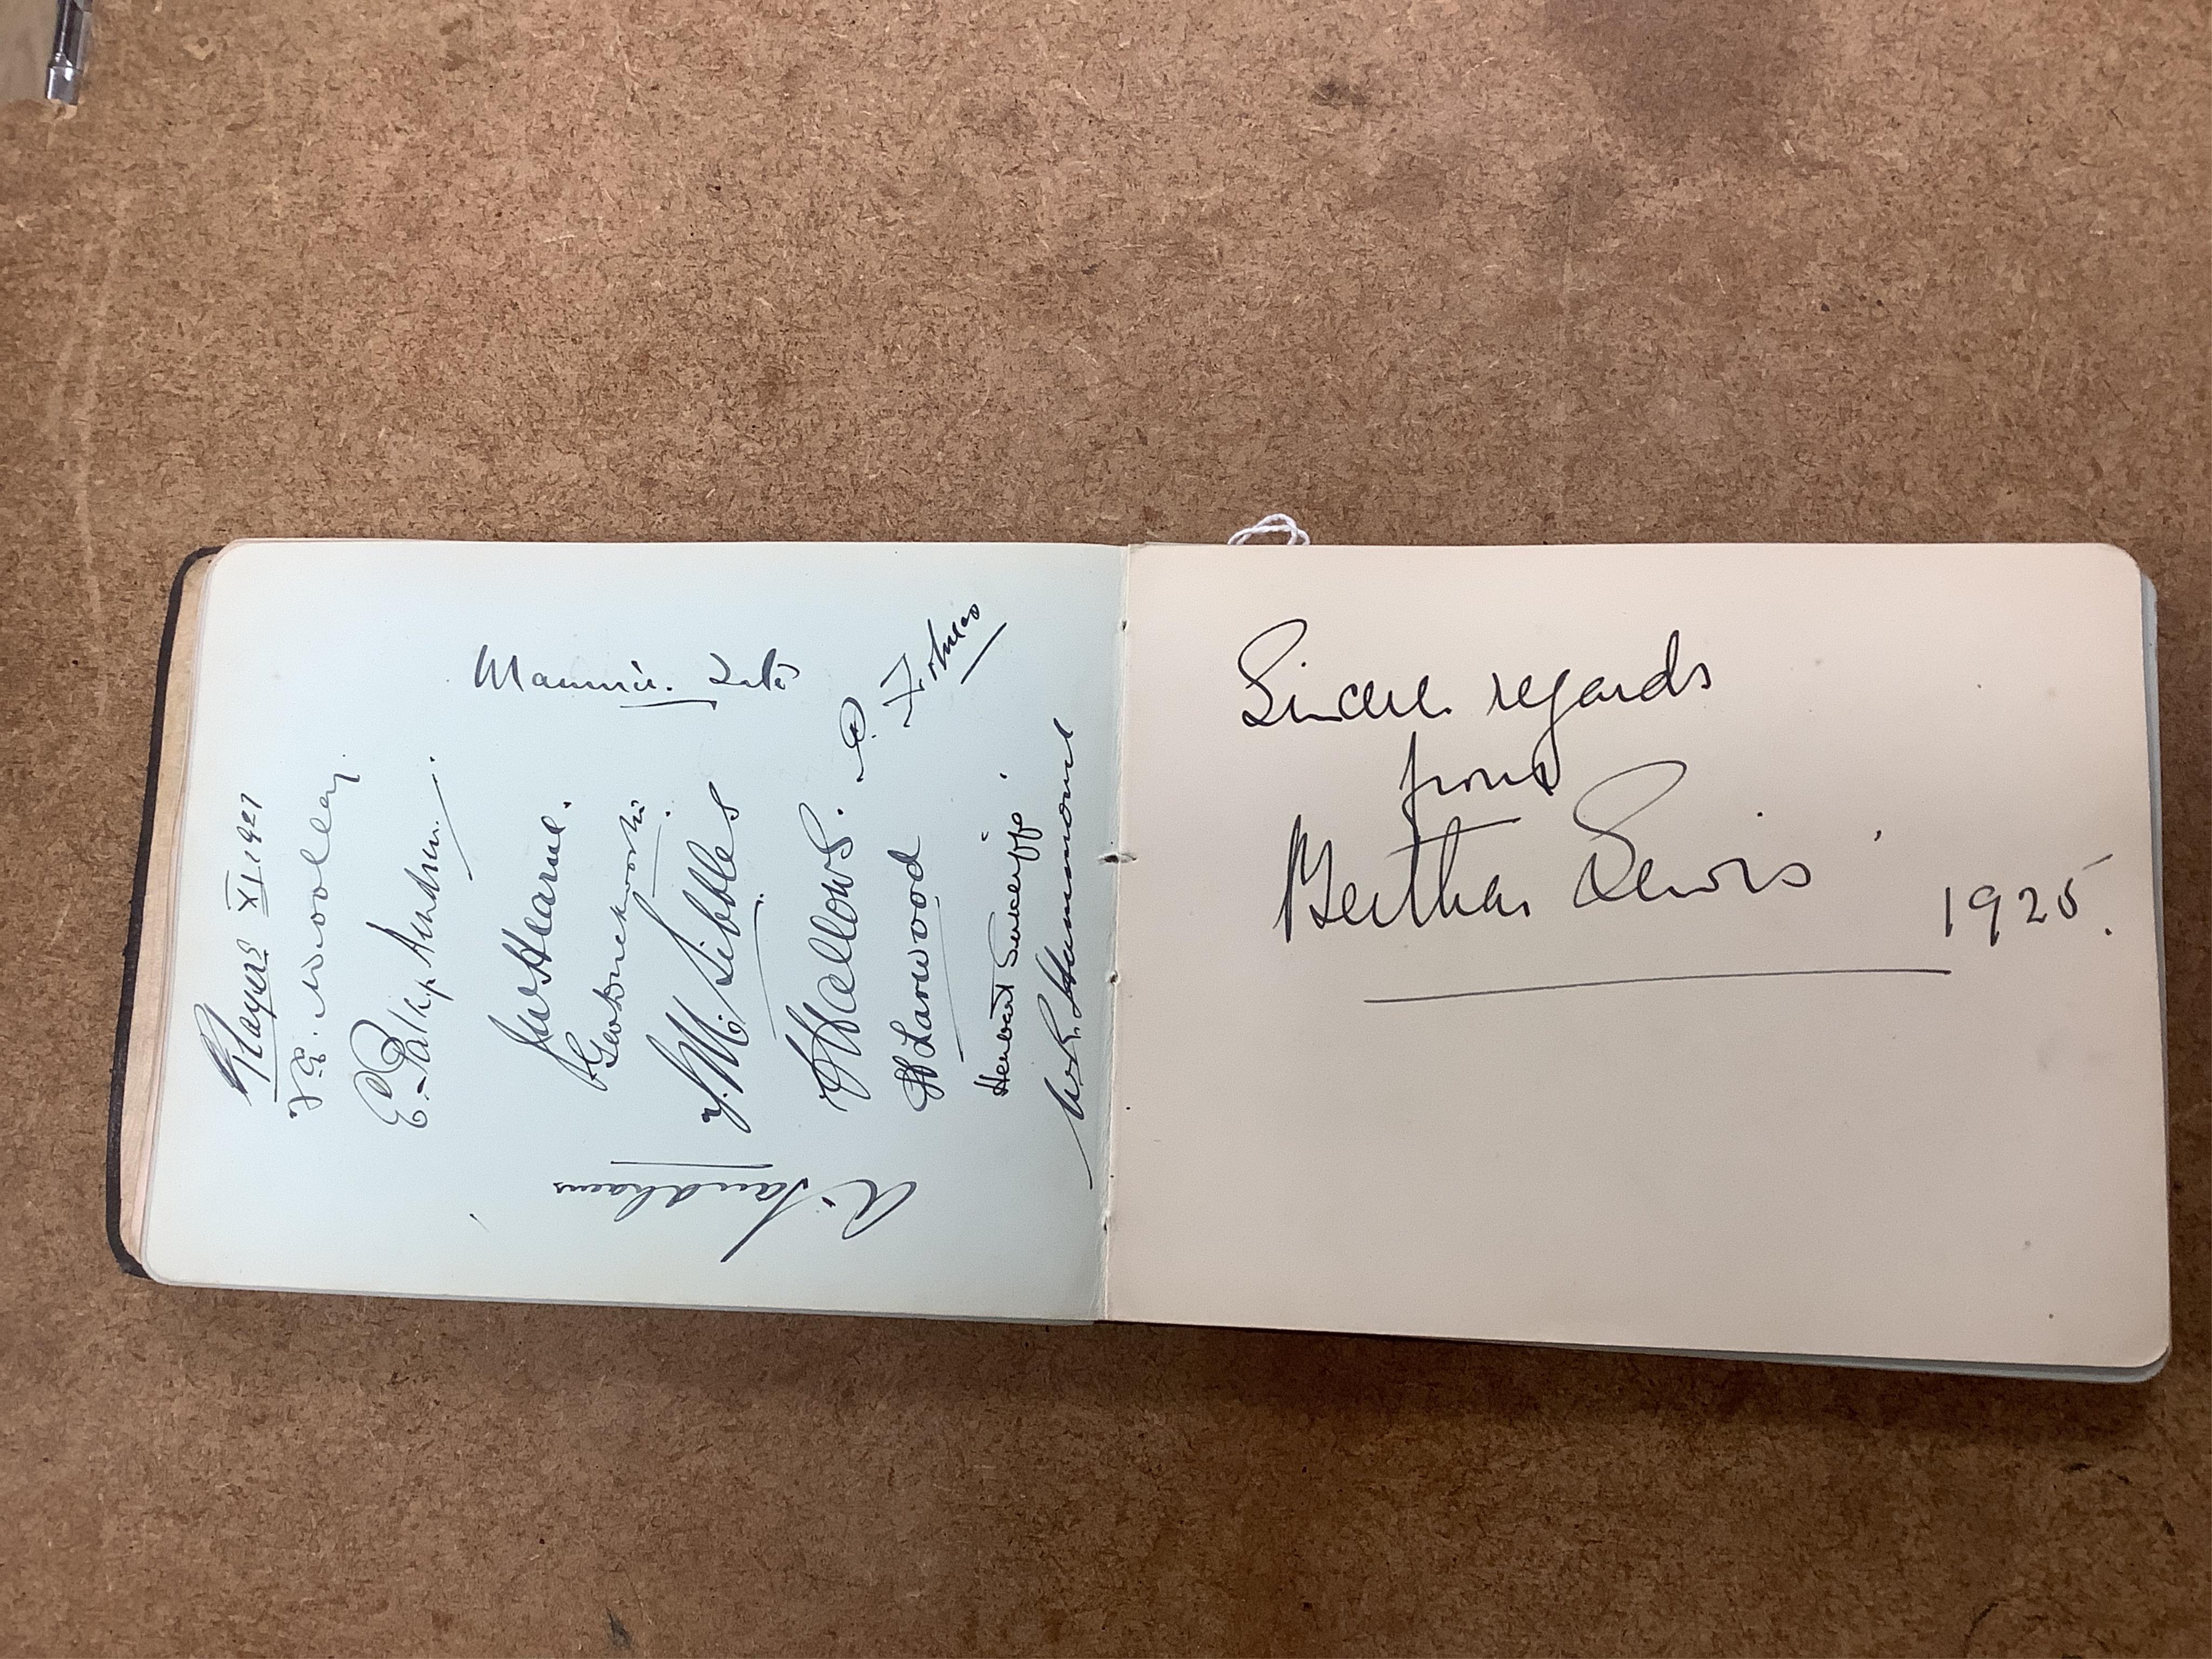 Players XI. 1927
F. E. Woolley.
E. Patsy Hendren.
Maurice Tate
J W Hearne.
Geo Duckworth.
F. M. Sibbles
C Hallows.
P. Holmes
H Larwood
Herbert Sutcliffe.
W R Hammond
A. Sandham
Sincere regards
from
Bertha Lewis
1925.